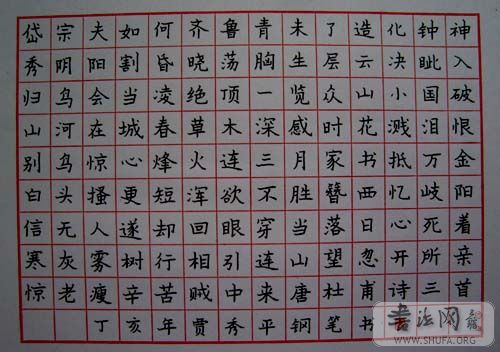 岱宗夫如何齐鲁青未了造化钟神
秀阴阳割昏晓荡胸生层云决眦入
归鸟会当凌绝顶一览众山小国破
山河在城春草木深感时花溅泪恨
别鸟惊心烽火连三月家书抵万金
白头搔更短浑欲不胜簪西忆岐阳
信无人遂却回眼穿当落日心死着
寒灰雾树行相引连山望忽开所亲
惊老瘦辛苦贼中来唐杜甫诗三首
丁亥年贾秀平钢笔书
书法网
WWW.SHUFA.ORG